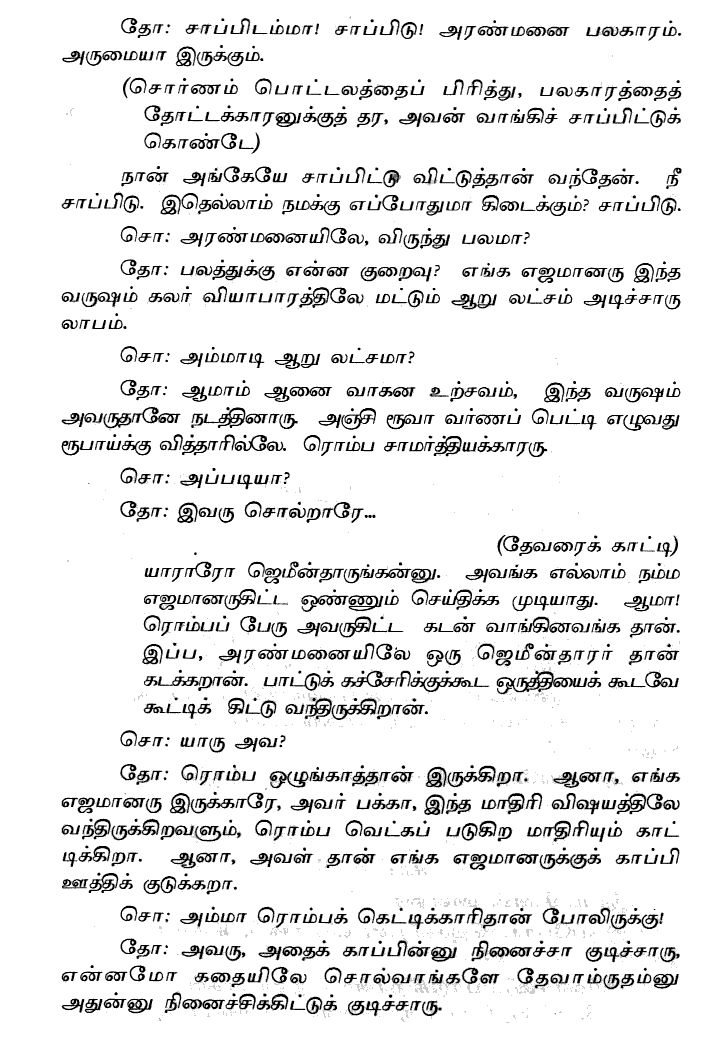 தோ: சாப்பிடம்மா! சாப்பிடு! அரண்மனை பலகாரம்.
அருமையா இருக்கும்.
(சொர்ணம் பொட்டலத்தைப் பிரித்து, பலகாரத்தைத்
தோட்டக்காரனுக்குத் தர, அவன் வாங்கிச் சாப்பிட்டுக்
கொண்டே)
நான் அங்கேயே சாப்பிட்டு விட்டுத்தான் வந்தேன். நீ
சாப்பிடு. இதெல்லாம் நமக்கு எப்போதுமா கிடைக்கும்? சாப்பிடு.
சொ: அரண்மனையிலே, விருந்து பலமா?
தோ: பலத்துக்கு என்ன குறைவு? எங்க எஜமானரு இந்த
வருஷம் கலர் வியாபாரத்திலே மட்டும் ஆறு லட்சம் அடிச்சாரு
லாபம்.
சொ: அம்மாடி ஆறு லட்சமா?
தோ: ஆமாம் ஆனை வாகன உற்சவம், இந்த வருஷம்
அவருதானே நடத்தினாரு. அஞ்சி ரூவா வர்ணப் பெட்டி எழுவது
ரூபாய்க்கு வித்தாரில்லே. ரொம்ப சாமர்த்தியக்காரரு.
சொ: அப்படியா?
தோ: இவரு சொல்றாரே...
(தேவரைக் காட்டி)
யாராரோ ஜெமீன்தாருங்கன்னு. அவங்க எல்லாம் நம்ம
எஜமானருகிட்ட ஒண்ணும் செய்திக்க முடியாது. ஆமா!
ரொம்பப் பேரு அவருகிட்ட கடன் வாங்கினவங்க தான்.
இப்ப, அரண்மனையிலே ஒரு ஜெமீன்தாரர் தான்
கடக்கறான். பாட்டுக் கச்சேரிக்குக்கூட ஒருத்தியைக் கூடவே
கூட்டிக் கிட்டு வந்திருக்கிறான்.
சொ: யாரு அவ?
தோ: ரொம்ப ஒழுங்காத்தான் இருக்கிறா. ஆனா, எங்க
எஜமானரு இருக்காரே, அவர் பக்கா, இந்த மாதிரி விஷயத்திலே
வந்திருக்கிறவளும், ரொம்ப வெட்கப் படுகிற மாதிரியும் காட்
டிக்கிறா. ஆனா, அவள் தான் எங்க எஜமானருக்குக் காப்பி
ஊத்திக் குடுக்கறா.
சொ: அம்மா ரொம்பக் கெட்டிக்காரிதான் போலிருக்கு!
தோ: அவரு, அதைக் காப்பின்னு நினைச்சா குடிச்சாரு,
என்னமோ கதையிலே சொல்வாங்களே தேவாம்ருதம்னு
அதுன்னு நினைச்சிக்கிட்டுக் குடிச்சாரு.